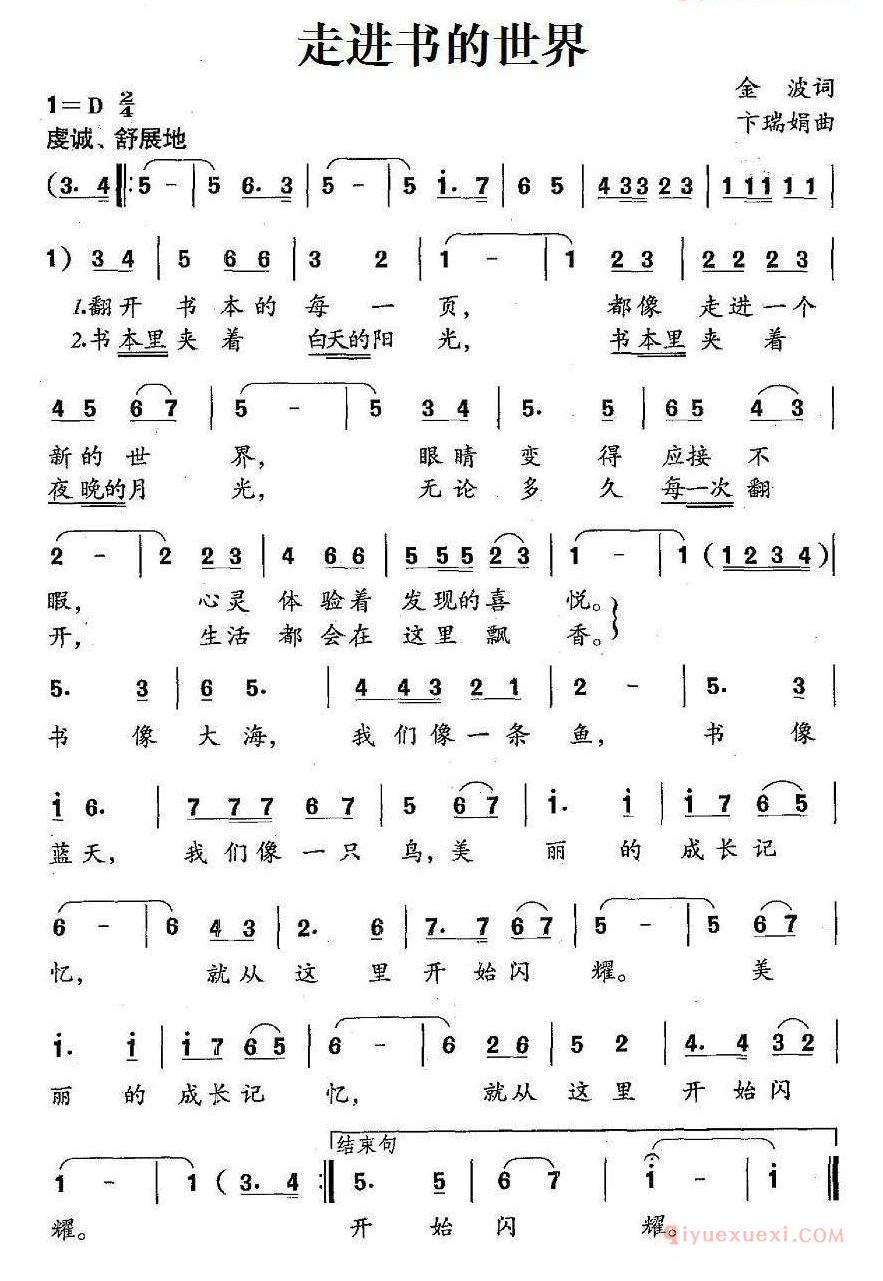 走进书的世界
金 波词
1=D 2/4
卞瑞娟曲
虔诚、舒展地
(3. 4 ‖: 5 - | 5 6. 3 | 5 - | 5 i. 7 | 6 5 | 4 33 2 3 | 1 11 1 1 |
1) 3 4 | 5 6 6 | 3 2 | 1 - | 1 2 3 | 2 2 2 3 |
1.翻开 书 本的 每 一 页, 都像 走进一个
2.书本里夹 着 白天的阳 光, 书本里 夹 着
4 5 6 7 | 5 - | 5 3 4 | 5. 5 | 6 5 4 3 |
新的世 界, 眼睛 变 得 应接 不
夜晚的月 光, 无论 多 久 每一次 翻
2 - | 2 2 3 | 4 6 6 | 5 55 2 3 | 1 - | 1 (1234) |
暇, 心灵 体 验着 发现的喜 悦。
开, 生活 都 会在 这里 飘 香。
5. 3 | 6 5. | 4 43 2 1 | 2 - | 5. 3 |
书 像 大 海, 我们像一条 鱼, 书 像
i 6. | 7 77 6 7 | 5 6 7 | i. i | i 7 6 5 |
蓝天, 我们像 一只 鸟,美 丽 的 成长记
6 - | 6 4 3 | 2. 6 | 7. 7 6 7 | 5 - | 5 6 7 |
忆, 就从 这 里 开始闪 耀。 美
i. i | i 7 6 5 | 6 - | 6 2 6 | 5 2 | 4. 4 3 2 |
丽 的 成长记 忆, 就从 这 里 开 始闪
结束句
1 - | 1 (3. 4 :‖ 5. 5 | 6 7 | i - | i ‖
耀。 开 始 闪 耀。
qiyuexuexi.com